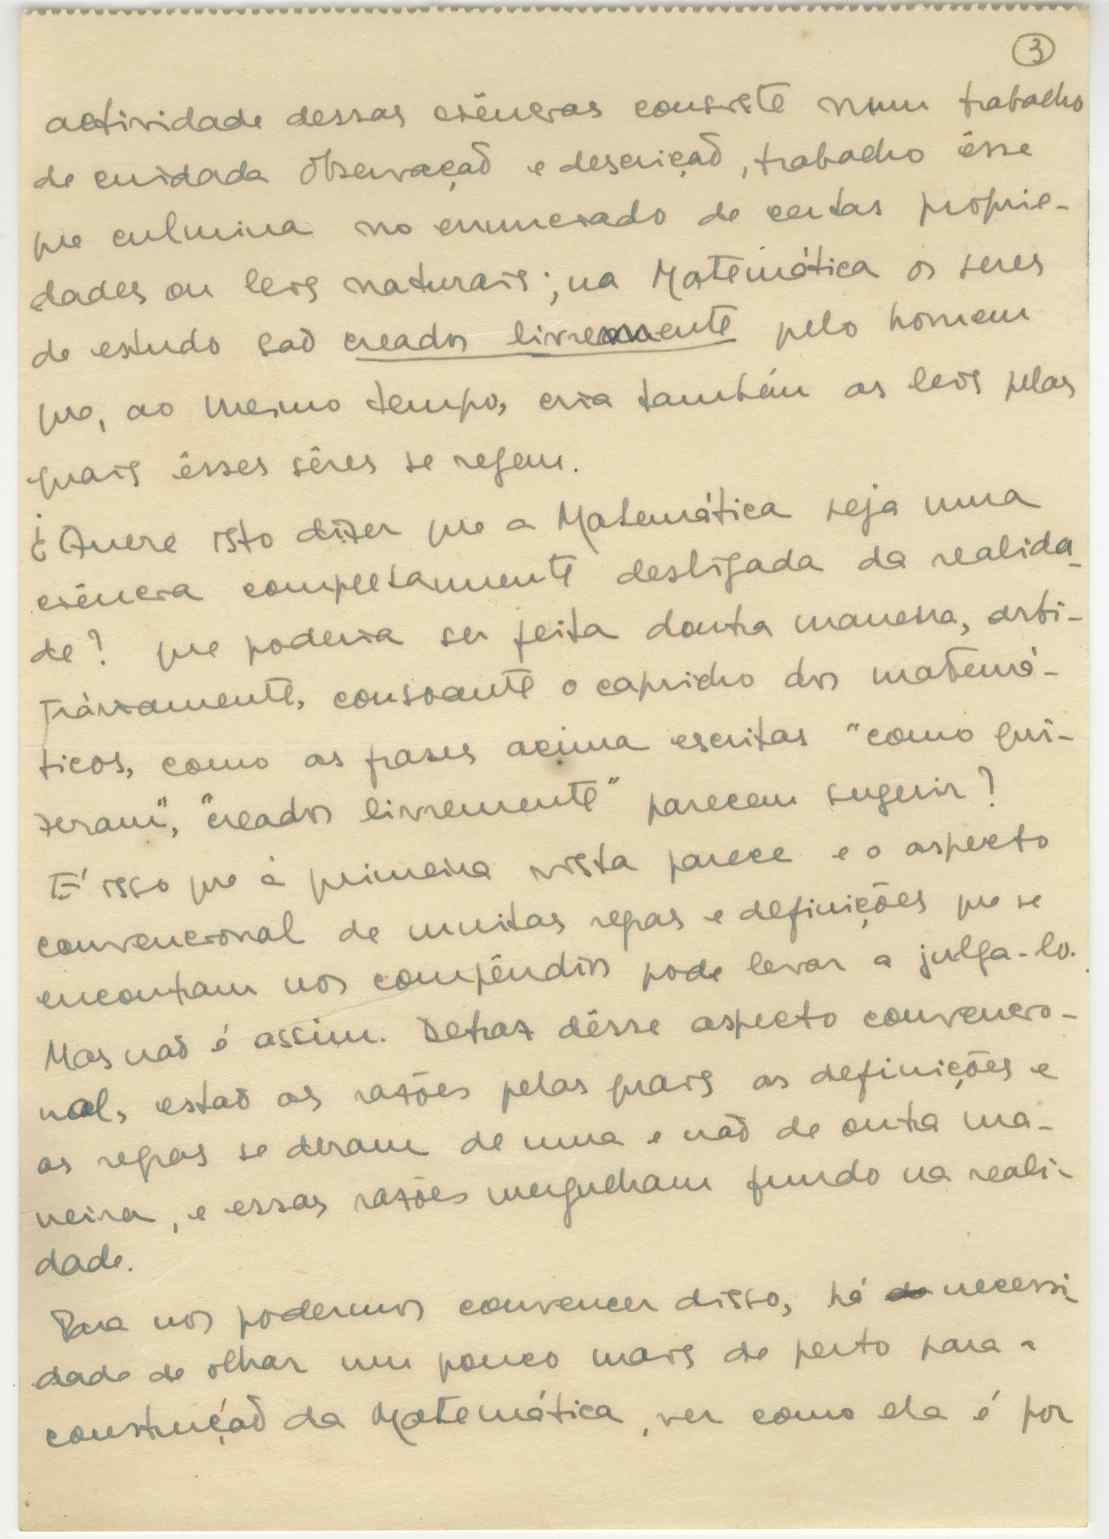 3
actividade dessas ciências consiste num trabalho
de cuidada observação e descrição, trabalho êsse
que culmina no enunciado de certas proprie-
dades ou leis naturais; na Matemática os seres
de estudo são creados livremente pelo homem
que, ao mesmo tempo, cria também as leis pelas
quais êsses sêres se regem.
¿Quere isto dizer que a Matemática seja uma
ciência completamente desligada da realida-
de? que poderia ser feita doutra maneira, arbi-
tràriamente, consoante o capricho dos matemá-
ticos, como as frases acima escritas "como qui-
zeram", "creados livremente" parecem sugerir?
E' isso que à primeira vista parece e o aspecto
convencional de muitas regras e definições que se
encontram nos compêndios pode levar a julga-lo.
Mas não é assim. Detraz dêsse aspecto convencio-
nal, estão as razões pelas quais as definições e
as regras se deram de uma e não de outra ma-
neira, e essas razões mergulham fundo na reali-
dade.
Para nos podermos convencer disso, há necessi
dade de olhar um pouco mais de perto para a
construção da Matemática, ver como ela é por